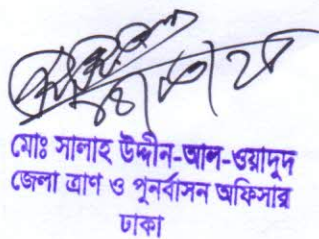 মোঃ সালাহ উদ্দীন-আল-ওয়াদুদ
জেলা ত্রাণ ও পুনর্বাসন অফিসার
ঢাকা